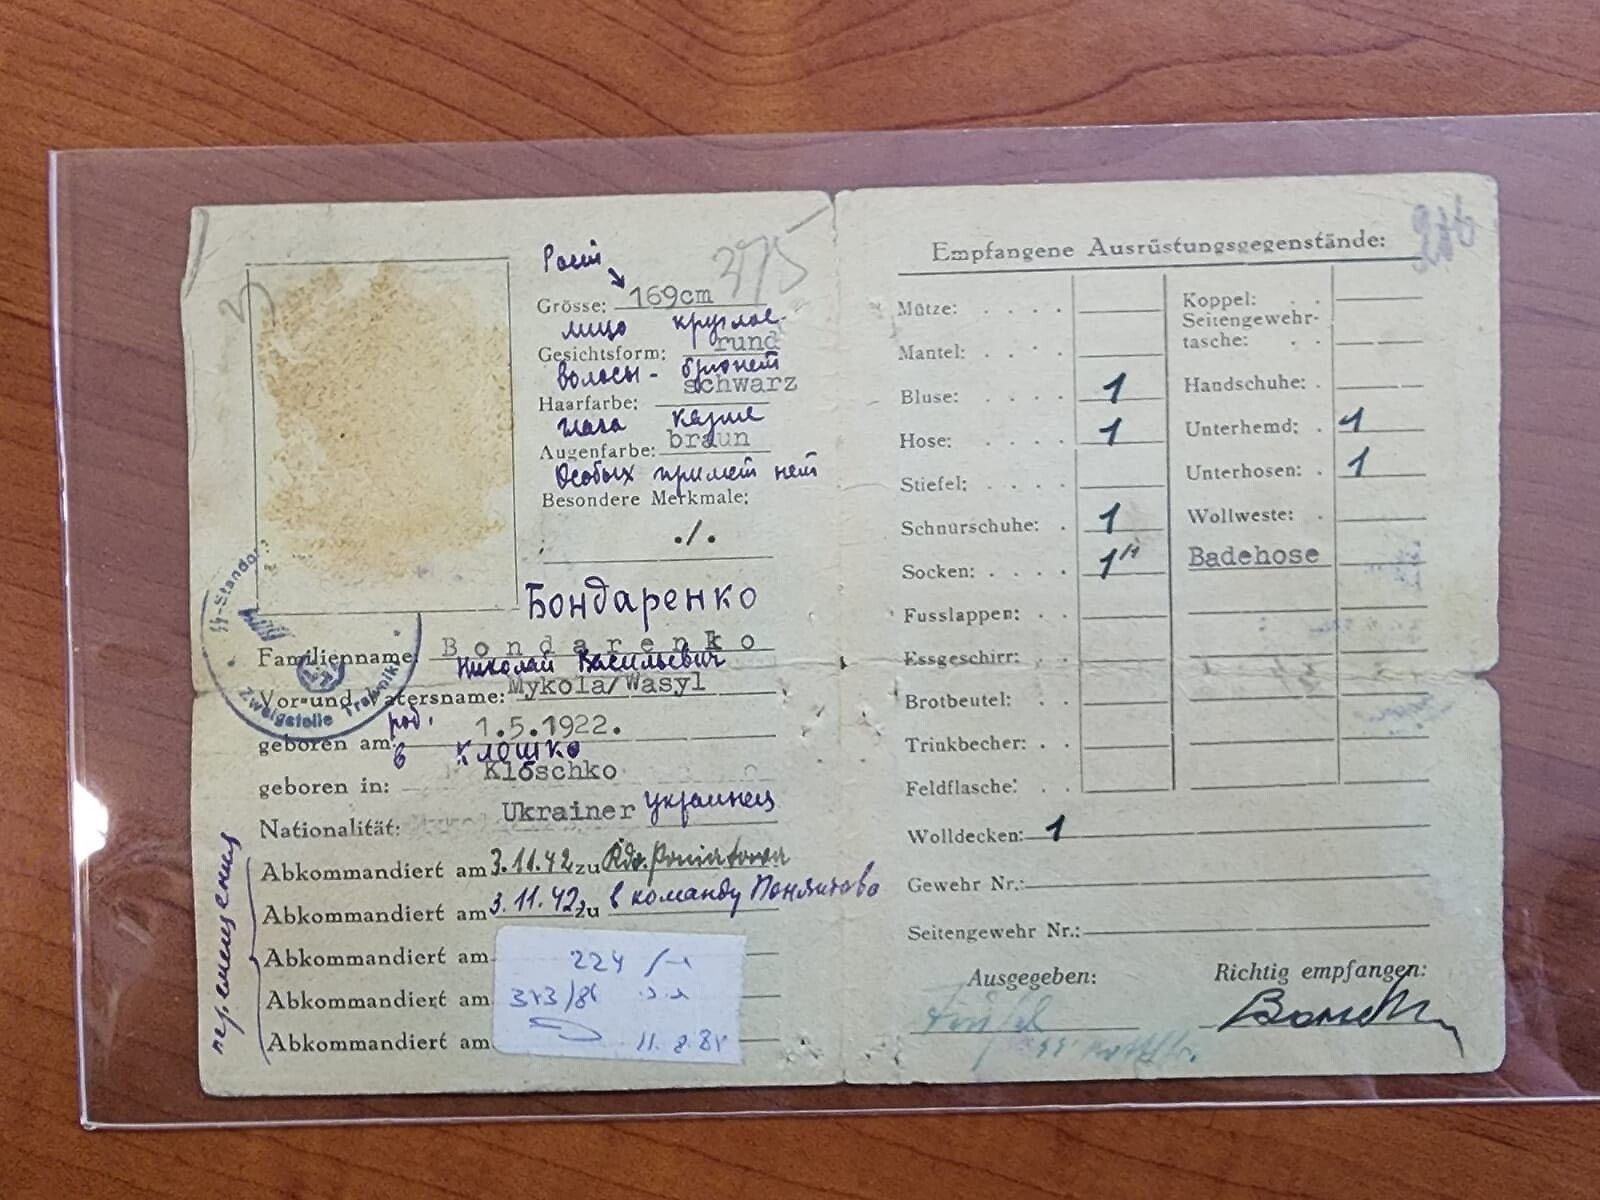 Рост
375
Grösse: 169cm
лицо круглое
Gesichtsform: rund
волосы - брюнет
schwarz
Haarfarbe:
глаза карие
Augenfarbe: braun
Особых примет нет
Besondere Merkmale:
./.
Бондаренко
Familienname: Bondarenko
Николай Васильевич
Vor-und Vatersname: Mykola/Wasyl
род.
geboren am: 1.5.1922.
в Клошко
geboren in: Klöschko
Nationalität: Ukrainer украинец
перемещения
Abkommandiert am 3.11.42 zu Kdo. Poniatowa
Abkommandiert am 3.11.42 zu в команду Понятово
Abkommandiert am
Abkommandiert am
Abkommandiert am
224
11.8.8
SS-Standor
Zweigstelle Trawniki
Empfangene Ausrüstungsgegenstände:
Mütze: . . . .
Mantel: . . . .
Bluse: . . . . 1
Hose: . . . . 1
Stiefel: . . . .
Schnürschuhe: . 1
Socken: . . . . 1
Fusslappen: . .
Essgeschirr: . .
Brotbeutel: . .
Trinkbecher: . .
Feldflasche: . .
Koppel: . .
Seitengewehr-
tasche: . .
Handschuhe: .
Unterhemd: . 1
Unterhosen: . 1
Wollweste: .
Badehose
Wolldecken: 1
Gewehr Nr.:
Seitengewehr Nr.:
Ausgegeben:
Richtig empfangen: